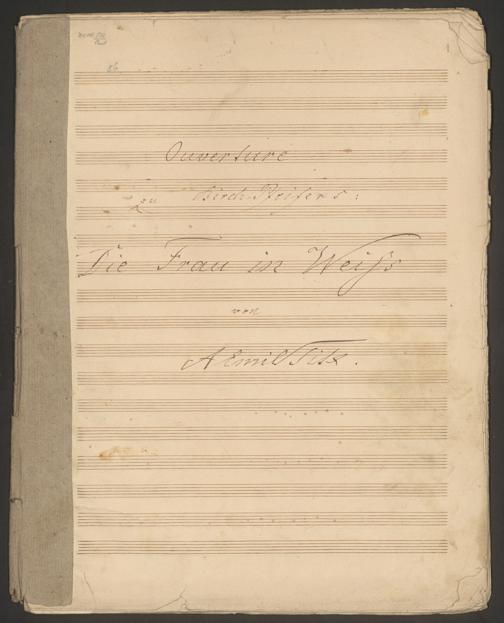 Ouverture
zu Birch-Pfeifers:
Die Frau in Weiß
von
A Emil Titl.